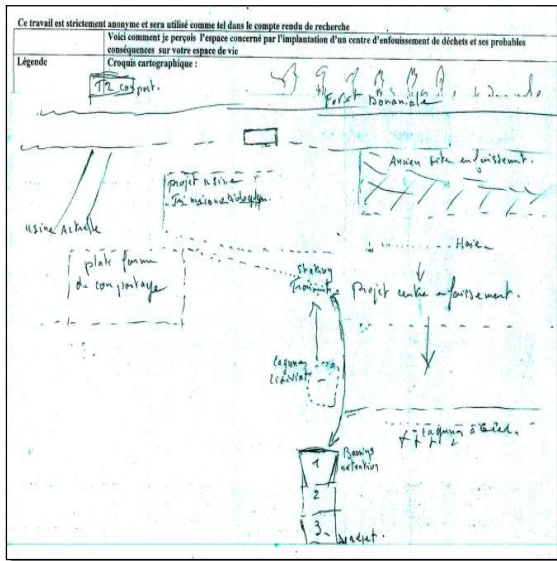 Ce travail est strictement anonyme et sera utilisé comme tel dans le compte rendu de recherche
Voici comment je perçois l'espace concerné par l'implantation d'un centre d'enfouissement de déchets et ses probables
conséquences sur votre espace de vie
Légende
Croquis cartographique :
Foret
Domaniale
Ancien site enfouissement.
projet usine
Usine Actuelle
Haie
plate forme
du compostage
station
Projet centre enfouissement.
lagunes
Lixiviat
Bassins
rétention
1
2
3